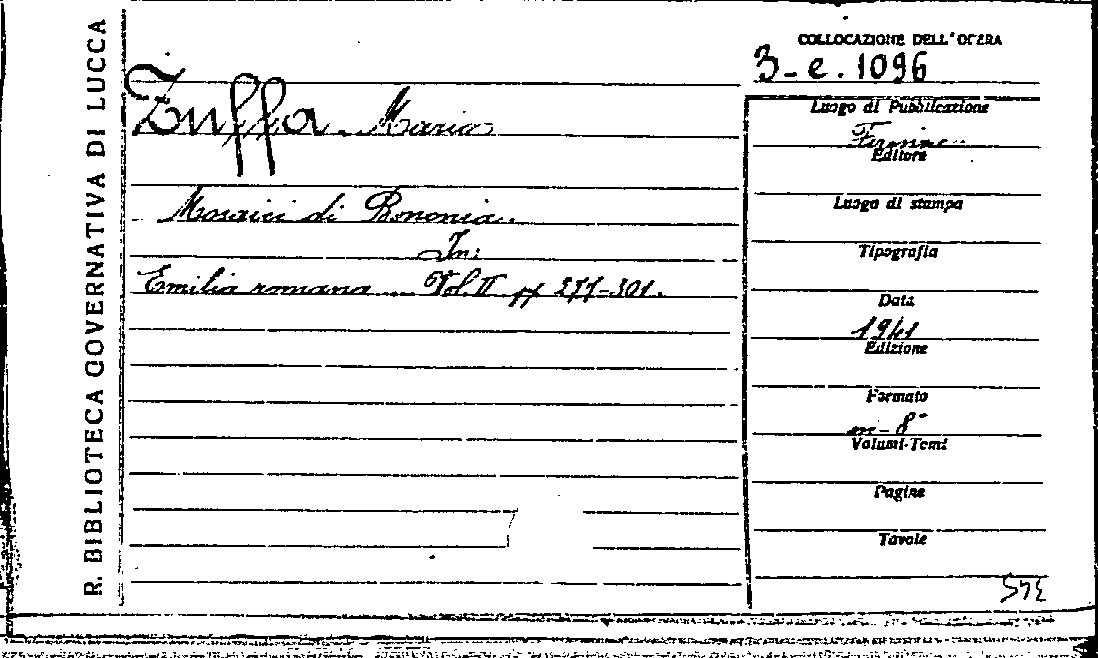 R. BIBLIOTECA GOVERNATIVA DI LUCCA
COLLOCAZIONE DELL'OPERA
3-e.1096
Zuffa. Maria
Mosaici di Bononia.
In:
Emilia romana Vol. II pp 277-301.
Luogo di Pubblicazione
Firenze
Editore
Luogo di stampa
Tipografia
Data
1941
Edizione
Formato
in-8°
Volumi-Tomi
Pagine
Tavole